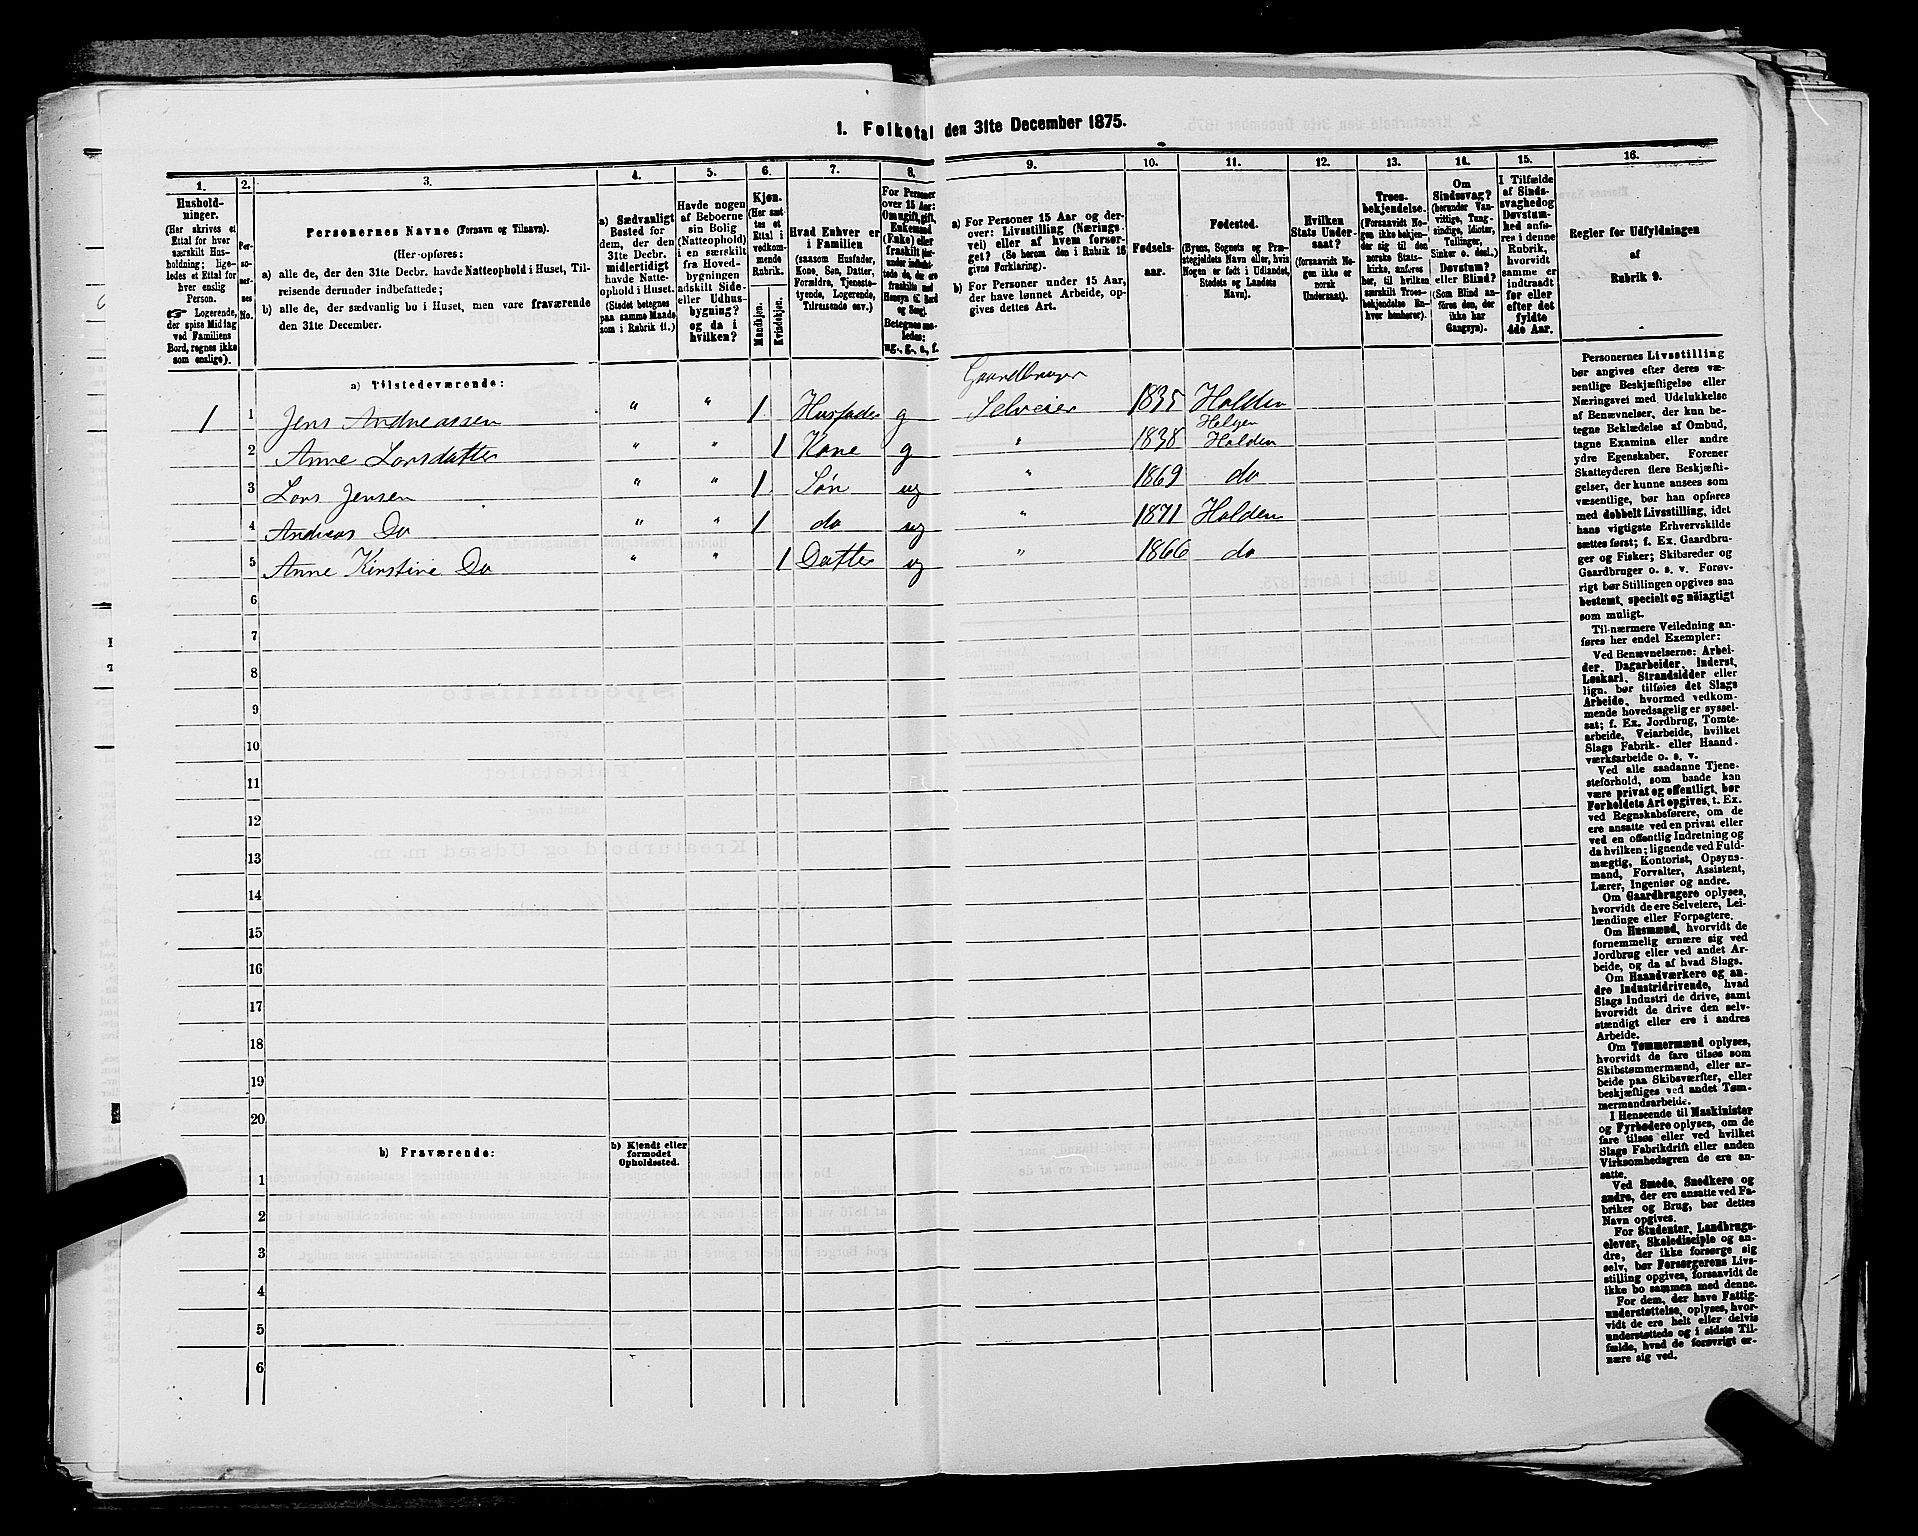 1. Folketal den 31te December 1875.
1. 2. 3. 4. 5. 6. 7. 8. 9. 10. 11. 12. 13. 14. 15. 16.
Hushold-
ninger.
(Her skrives et
Ettal for hver
særskilt Hus-
holdning; lige-
ledes et Ettal for
hver enslig
Person.
☞ Logerende,
der spise Middag
ved Familiens
Bord, regnes ikke
som enslige).
Per-
so-
ner-
nes
No.
Personernes Navne (Fornavn og Tilnavn).
(Her opføres:
a) alle de, der den 31te Decbr. havde Natteophold i Huset, Til-
reisende derunder indbefattede;
b) alle de, der sædvanlig bo i Huset, men vare fraværende
den 31te December.
a) Sædvanligt
Bosted for
dem, der den
31te Decbr.
midlertidigt
havde Natte-
ophold i Huset.
(Stedet betegnes
paa samme Maade
som i Rubrik 11.)
Havde nogen
af Beboerne
sin Bolig
(Natteophold)
i en særskilt
fra Hoved-
bygningen
adskilt Side-
eller Udhus-
bygning?
og da i
hvilken?
Kjøn.
(Her sæt-
tes et
Ettal i
vedkom-
mende
Rubrik.
Mandkjøn.
Kvindekjøn.
Hvad Enhver er
i Familien
(saasom Husfader,
Kone, Søn, Datter,
Forældre, Tjeneste-
tyende, Logerende,
Tilreisende osv.)
For Personer
over 15 Aar:
Om ugift, gift,
Enkemand
(Enke) eller
fraskilt
Betegnes saa-
ledes:
ug., g., e., f.
a) For Personer 15 Aar og der-
over: Livsstilling (Nærings-
vei) eller af hvem forsør-
get? (Se herom den i Rubrik 16
givne Forklaring).
b) For Personer under 15 Aar,
der have lønnet Arbeide, op-
gives dettes Art.
Fødsels-
aar.
Fødested.
(Byens, Sognets og Præ-
stegjeldets Navn eller, hvis
Nogen er født i Udlandet,
Stedets og Landets
Navn).
Hvilken
Stats Under-
saat?
(forsaavidt No-
gen ikke er
norsk
Undersaat).
Troes-
bekjendelse.
(Forsaavidt No-
gen ikke bekjen-
der sig til den
norske Stats-
kirke, anføres
her, til hvilken
særskilt Troes-
bekjendelse En-
hver henhører).
Om
Sindssvag?
(herunder Van-
vittige, Tung-
sindige, Idioter,
Tullinger,
Sinker o. desl.).
Døvstum?
eller Blind?
(Som Blind an-
føres den, der
ikke har
Gangsyn).
I Tilfælde
af Sinds-
svaghed og
Døvstum-
hed anfø-
res i denne
Rubrik,
hvorvidt
samme er
indtraadt
før eller
efter det
fyldte
4de Aar.
Regler for Udfyldningen
af
Rubrik 9.
a) Tilstedeværende:
Gaardbruger
1 1 Jens Andreassen " " 1 Husfader g Selveier 1835 Holden
Helgen
2 Anne Larsdatter " " 1 Kone g " 1838 Holden
3 Lars Jensen " " 1 Søn ug " 1869 do
4 Andreas Do " " 1 do ug " 1871 Holden
5 Anne Kirstine Do " " 1 Datter ug " 1866 do
6
7
8
9
10
11
12
13
14
15
16
17
18
19
20
b) Fraværende:
b) Kjendt eller
formodet
Opholdssted.
1
2
3
4
5
6
Personernes Livsstilling
bør angives efter deres væ-
sentlige Beskjæftigelse eller
Næringsvei med Udelukkelse
af Benævnelser, der kun be-
tegne Beklædelse af Ombud,
tagne Examina eller andre
ydre Egenskaber. Forener
Skatteyderen flere Beskjæfti-
gelser, der kunne ansees som
væsentlige, bør han opføres
med dobbelt Livsstilling, idet
hans vigtigste Erhvervskilde
sættes først; f. Ex. Gaardbru-
ger og Fisker; Skibsreder og
Gaardbruger o. s. v. Forøv-
rigt bør Stillingen opgives saa
bestemt, specielt og nøiagtigt
som muligt.
Til nærmere Veiledning an-
føres her endel Exempler:
Ved Benævnelserne: Arbei-
der, Dagarbeider, Inderst,
Løskarl, Strandsidder eller
lign. bør tilføies det Slags
Arbeide, hvormed vedkom-
mende hovedsagelig er syssel-
sat; f. Ex. Jordbrug, Tomte-
arbeide, Veiarbeide, hvilket
Slags Fabrik- eller Haand-
værksarbeide o. s. v.
Ved alle saadanne Tjene-
steforhold, som baade kan
være privat og offentligt, bør
Forholdets Art opgives, t. Ex.
ved Regnskabsførere, om de
ere ansatte ved en privat eller
ved en offentlig Indretning og
da hvilken; lignende ved Fuld-
mægtig, Kontorist, Opsyns-
mand, Forvalter, Assistent,
Lærer, Ingeniør og andre.
Om Gaardbrugere oplyses,
hvorvidt de ere Selveiere, Lei-
lændinge eller Forpagtere.
Om Husmænd, hvorvidt de
fornemmelig ernære sig ved
Jordbrug eller ved andet Ar-
beide, og da af hvad Slags.
Om Haandværkere og an-
dre Industridrivende, hvad
Slags Industri de drive, samt
hvorvidt de drive den selv-
stændigt eller ere i andres
Arbeide.
Om Tømmermænd oplyses,
hvorvidt de fare tilsøs som
Skibstømmermænd, eller ar-
beide paa Skibsværfter, eller
beskjæftiges ved andet Tøm-
mermandsarbeide.
I Henseende til Maskinister
og Fyrbødere oplyses, om de
fare tilsøs eller ved hvilket
Slags Fabrikdrift eller anden
Virksomhedsgren de ere an-
satte.
Ved Smede, Snedkere og
andre, der ere ansatte ved Fa-
briker og Brug, bør dettes
Navn opgives.
For Studenter, Landbrugs-
elever, Skoledisciple og an-
dre, der ikke forsørge sig
selv, bør Forsørgerens Livs-
stilling opgives, forsaavidt de
ikke bo sammen med denne.
For dem, der have Fattig-
understøttelse, oplyses, hvor-
vidt de ere helt eller delvis
understøttede og i sidste Til-
fælde, hvad de forøvrigt er-
nære sig ved.